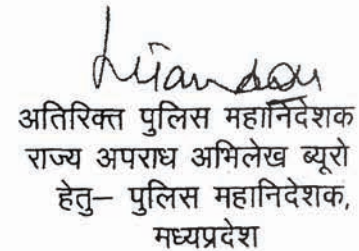 अतिरिक्त पुलिस महानिदेशक
राज्य अपराध अभिलेख ब्यूरो
हेतु– पुलिस महानिदेशक,
मध्यप्रदेश